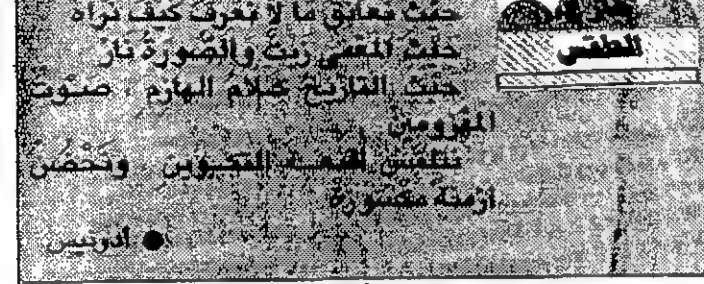 حيث تعانق ما لا تعرف كيف تراه
حيث المعنى زيت والصورة نار
حيث التاريخ كلام الهازم ، صوت
المهزومين
نتلمس أقنعة التكوين ونحضن
أزمنة مكسورة
● أدونيس
الطقس